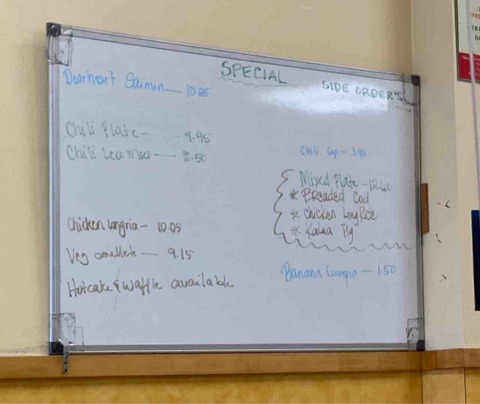 SPECIAL
SIDE ORDER'S
Dearheart Saimin
Chili Plate - 9.95
Chili Loco Moco -
Chicken Longnia - 10.05
Veg omelleh - 9.15
Hotcake & Waffle available
Chili Cup - 3.95
Mixed Plate -
* Breaded Cod
* Chicken Long Rice
* Kalua Pig
Banana Lumpia - 1.50